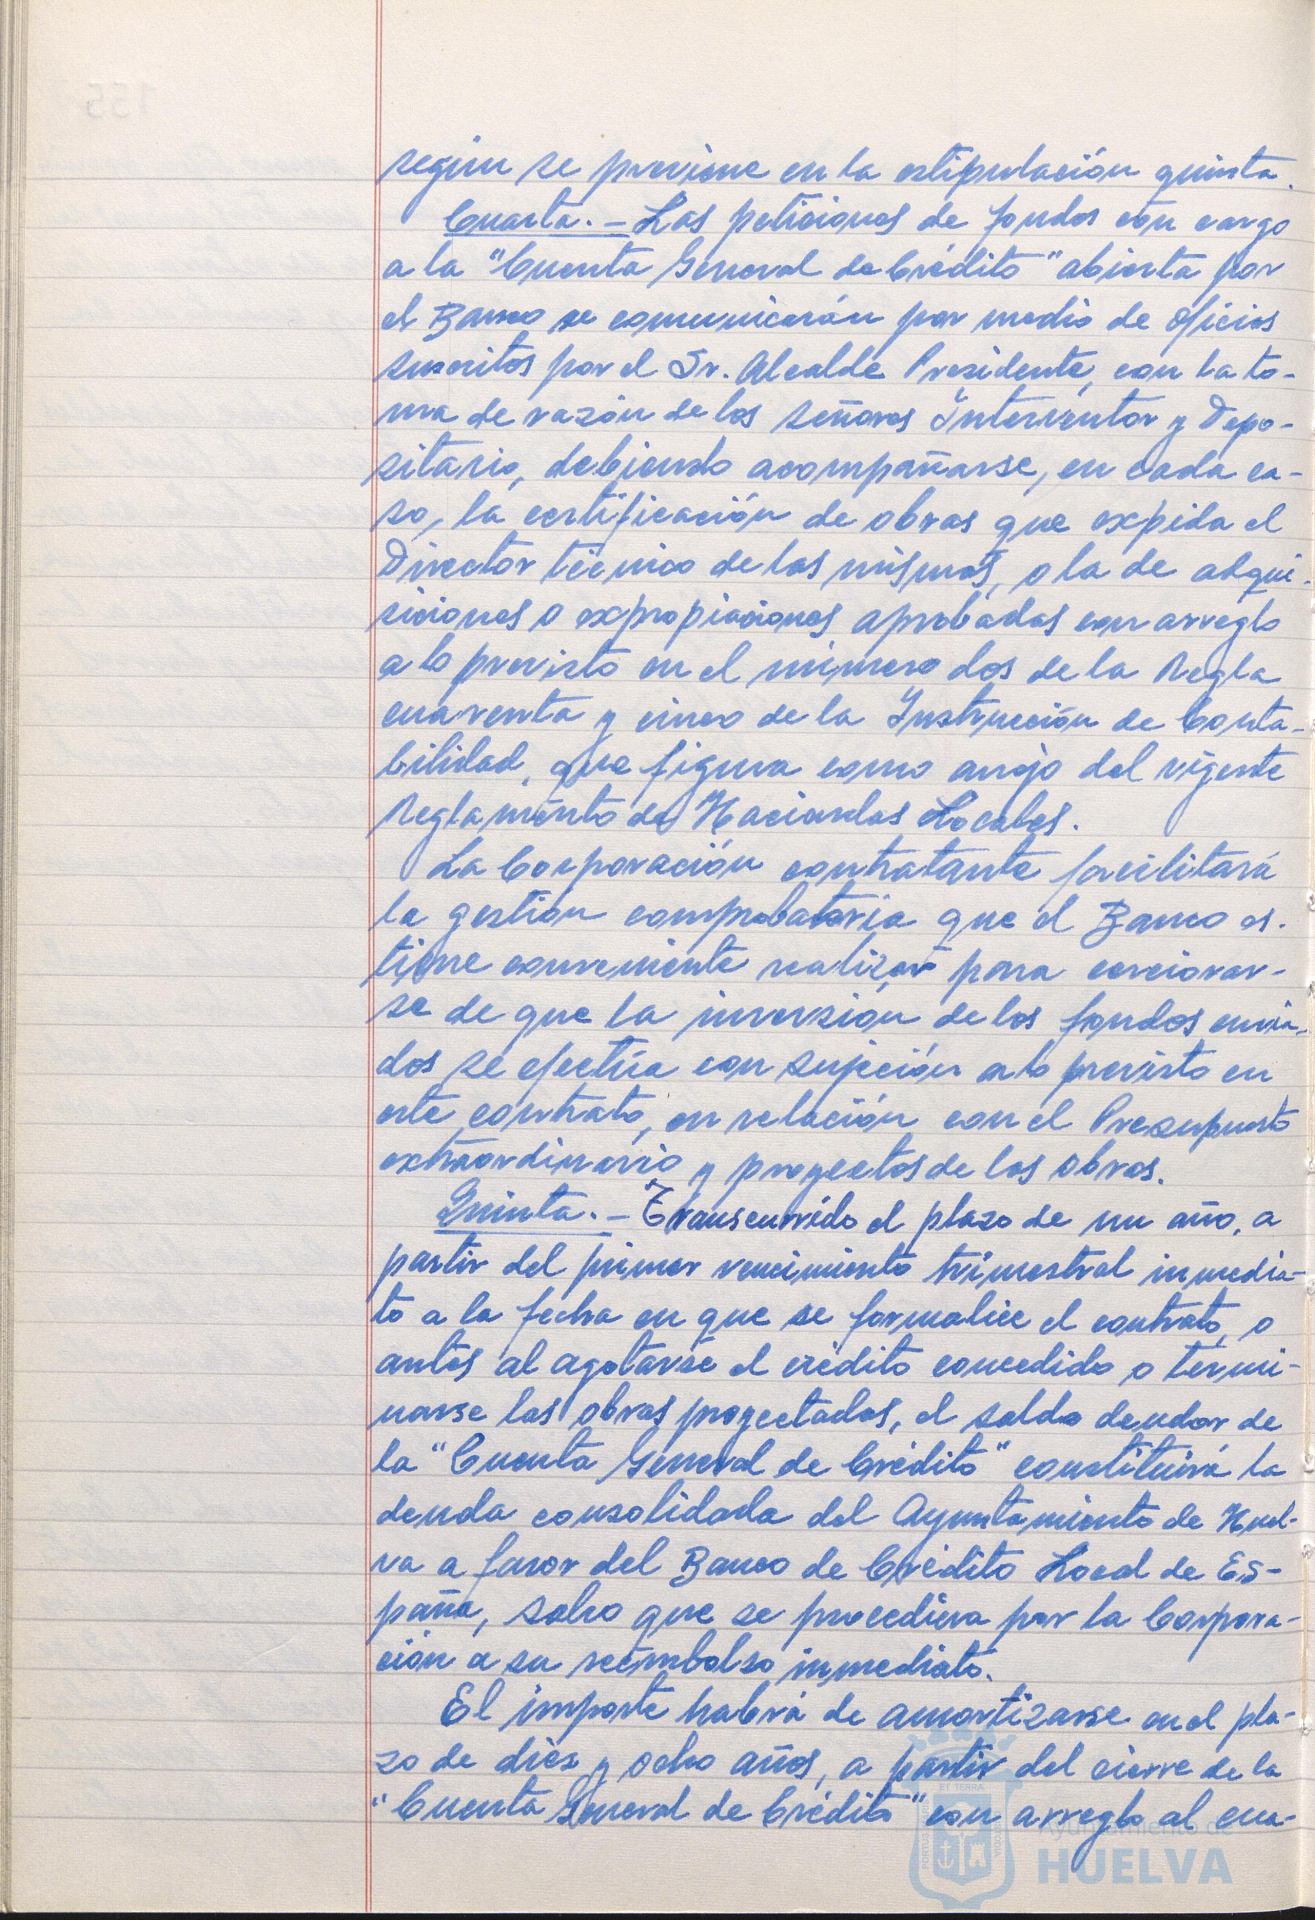 según se previene en la estipulación quinta.
Cuarta.- Las peticiones de fondos con cargo
a la "Cuenta General de Crédito" abierta por
el Banco se comunicarán por medio de oficios
suscritos por el Sr. Alcalde Presidente, con la to-
ma de razón de los señores Interventor y Depo-
sitario, debiendo acompañarse, en cada ca-
so, la certificación de obras que expida el
Director técnico de las mismas, o la de adqui-
siciones o expropiaciones aprobadas con arreglo
a lo previsto en el número dos de la Regla
cuarenta y cinco de la Instrucción de Conta-
bilidad, que figura como anejo del vigente
Reglamento de Haciendas Locales.
La Corporación contratante facilitará
la gestión comprobatoria que el Banco es-
time conveniente realizar para cerciorar-
se de que la inversión de los fondos envia-
dos se efectúa con sujeción a lo previsto en
este contrato, en relación con el Presupuesto
extraordinario y proyectos de las obras.
Quinta.- Transcurrido el plazo de un año, a
partir del primer vencimiento trimestral inmedia-
to a la fecha en que se formalice el contrato, o
antes al agotarse el crédito concedido o termi-
narse las obras proyectadas, el saldo deudor de
la "Cuenta General de Crédito" constituirá la
deuda consolidada del Ayuntamiento de Huel-
va a favor del Banco de Crédito Local de Es-
paña, salvo que se procediera por la Corpora-
ción a su reembolso inmediato.
El importe habrá de amortizarse en el pla-
zo de diez y ocho años, a partir del cierre de la
"Cuenta General de Crédito" con arreglo al cua-
Ayuntamiento de
HUELVA